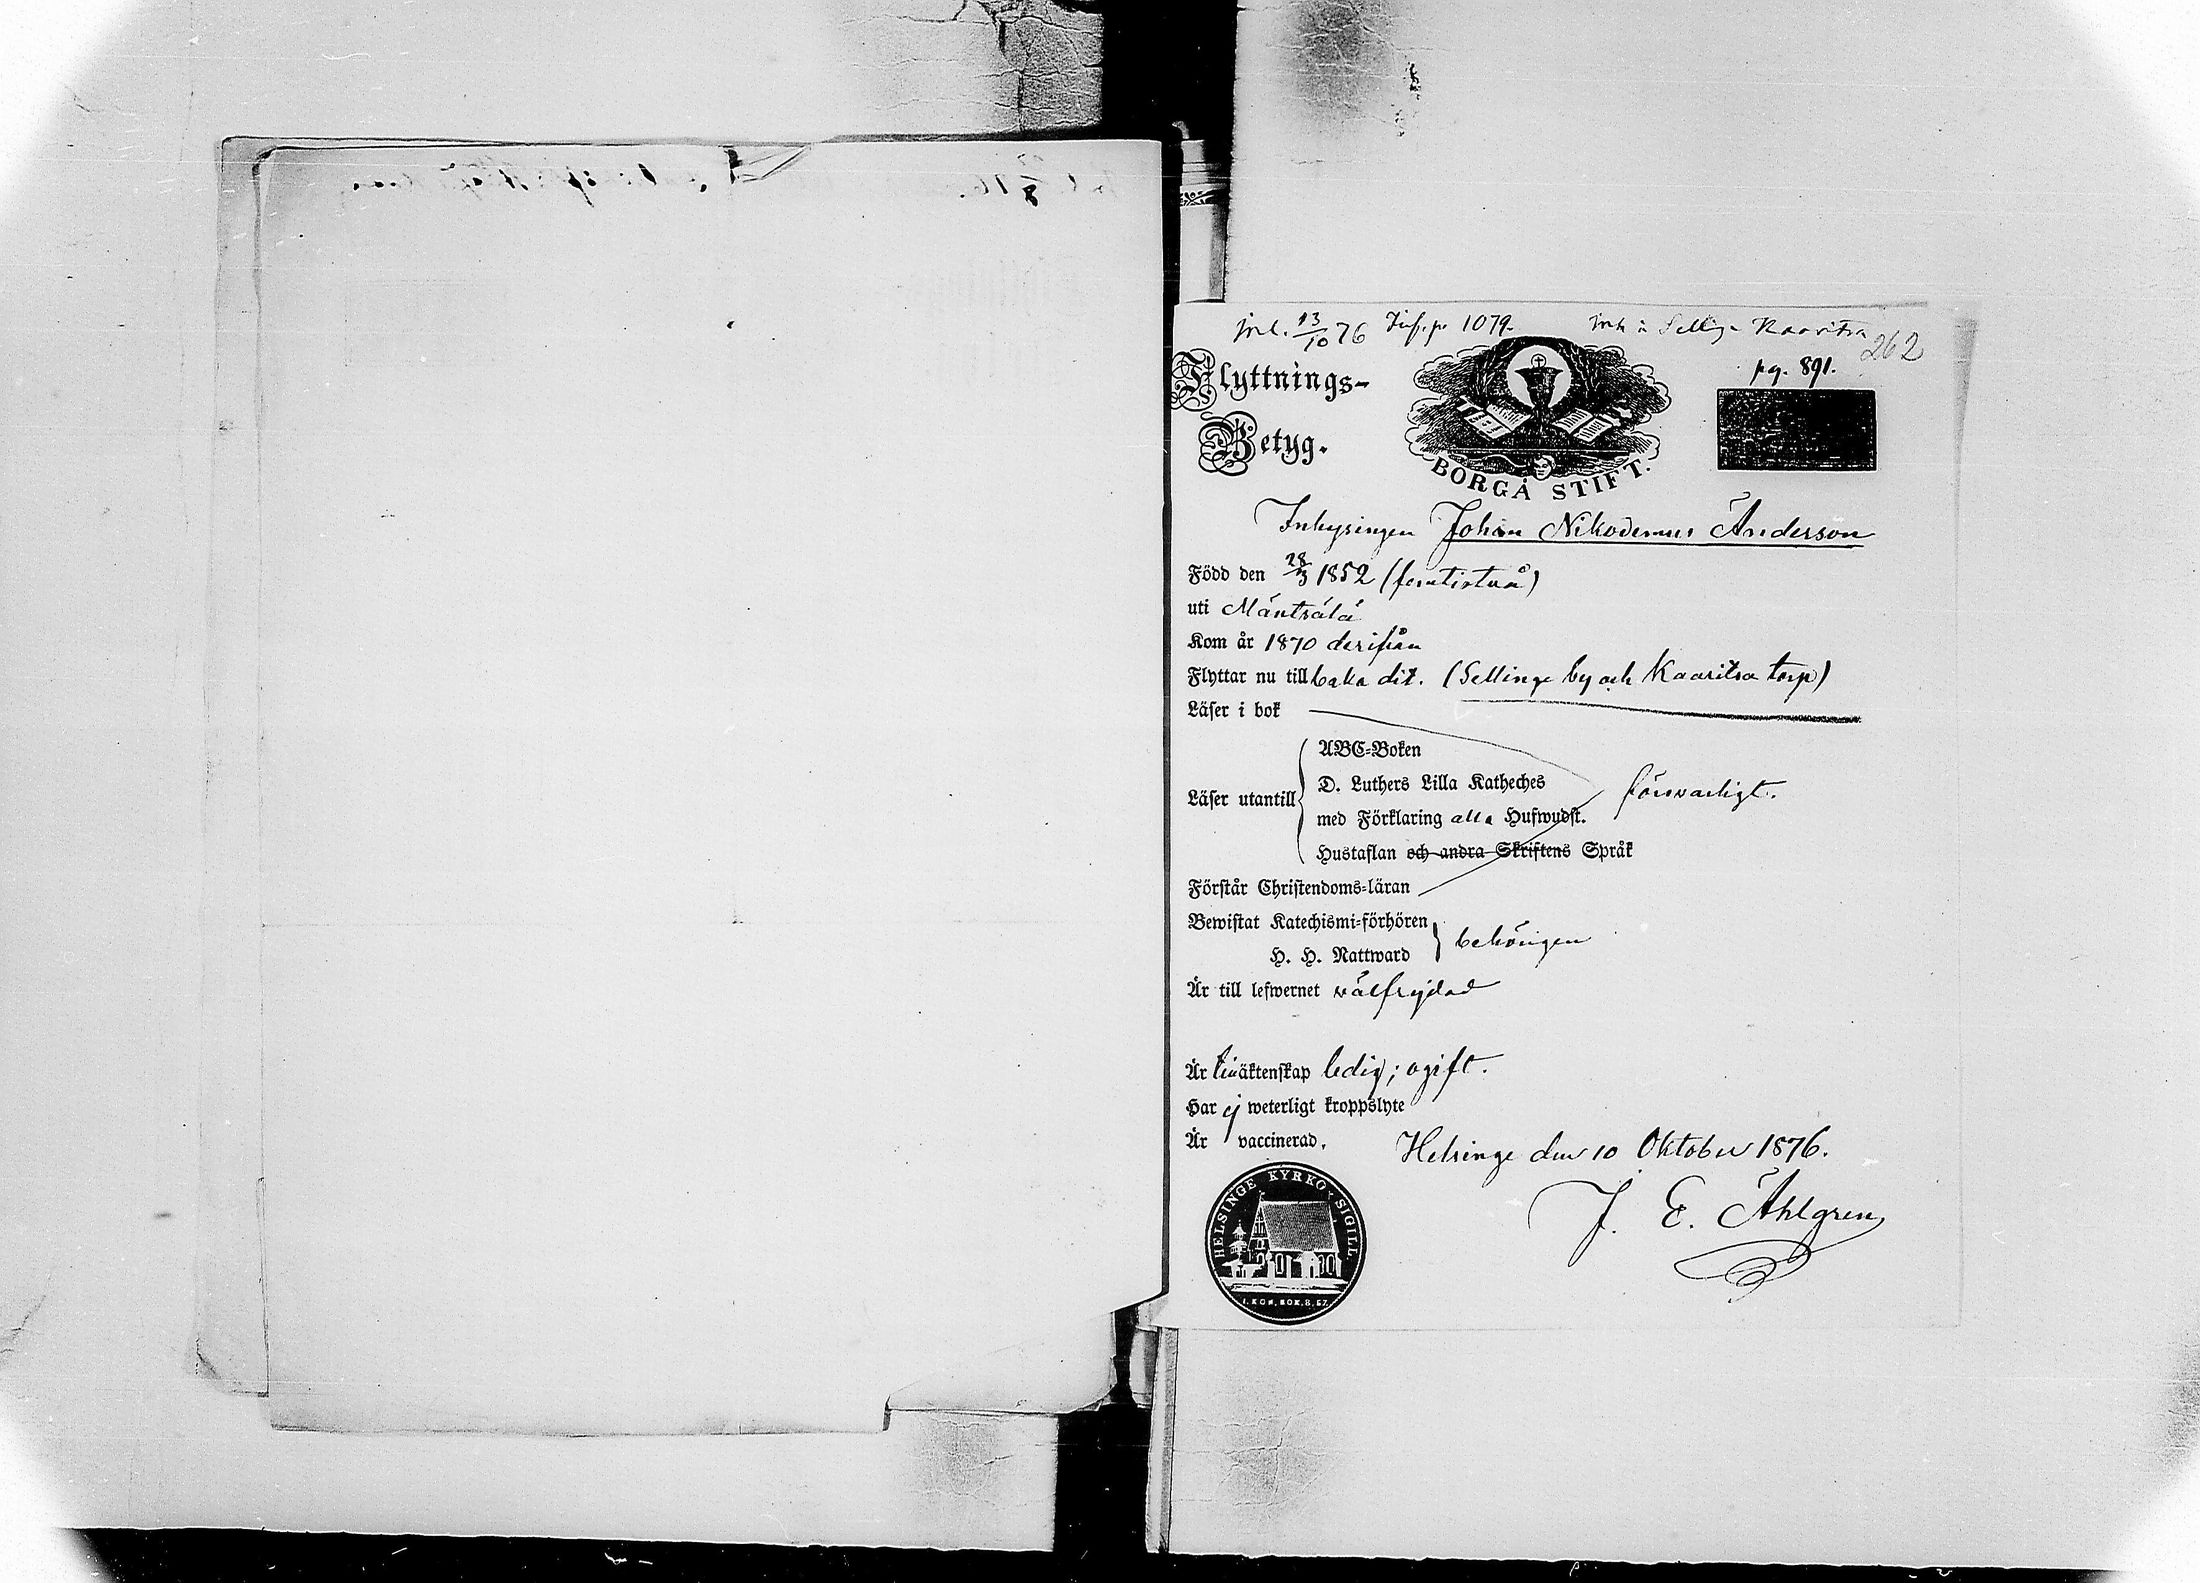 inl. 13/10 76 Dispp. 1079. Inh i Sellinge Kaaritsa 262
pg. 891.
Flyttnings-
Betyg.
BORGÅ STIFT.
Inhysingen Johan Nikodemus Anderson
Född den 28/3 1852 (femtiotvå)
uti Mäntsälä
Kom år 1870 derifrån
Flyttar nu tillbaka dit. (Sellinge by och Kaaritsa torp)
Läser i bok
ABC-Boken
D. Luthers Lilla Katheches
Läser utantill försvarligt.
med Förklaring alla Hufwudst.
Hustaflan och andra Skriftens Språk
Förstår Christendoms-läran
Bewistat Katechismi-förhören
behörigen
H. H. Nattward
Är till lefwernet välfrejdad
Är till äktenskap ledig; ogift.
Har ej weterligt kroppslyte
Är vaccinerad.
Helsinge den 10 Oktober 1876.
J. E. Ahlgren
HELSINGE KYRKO SIGILL
1. KON. BOK. 8, 57.